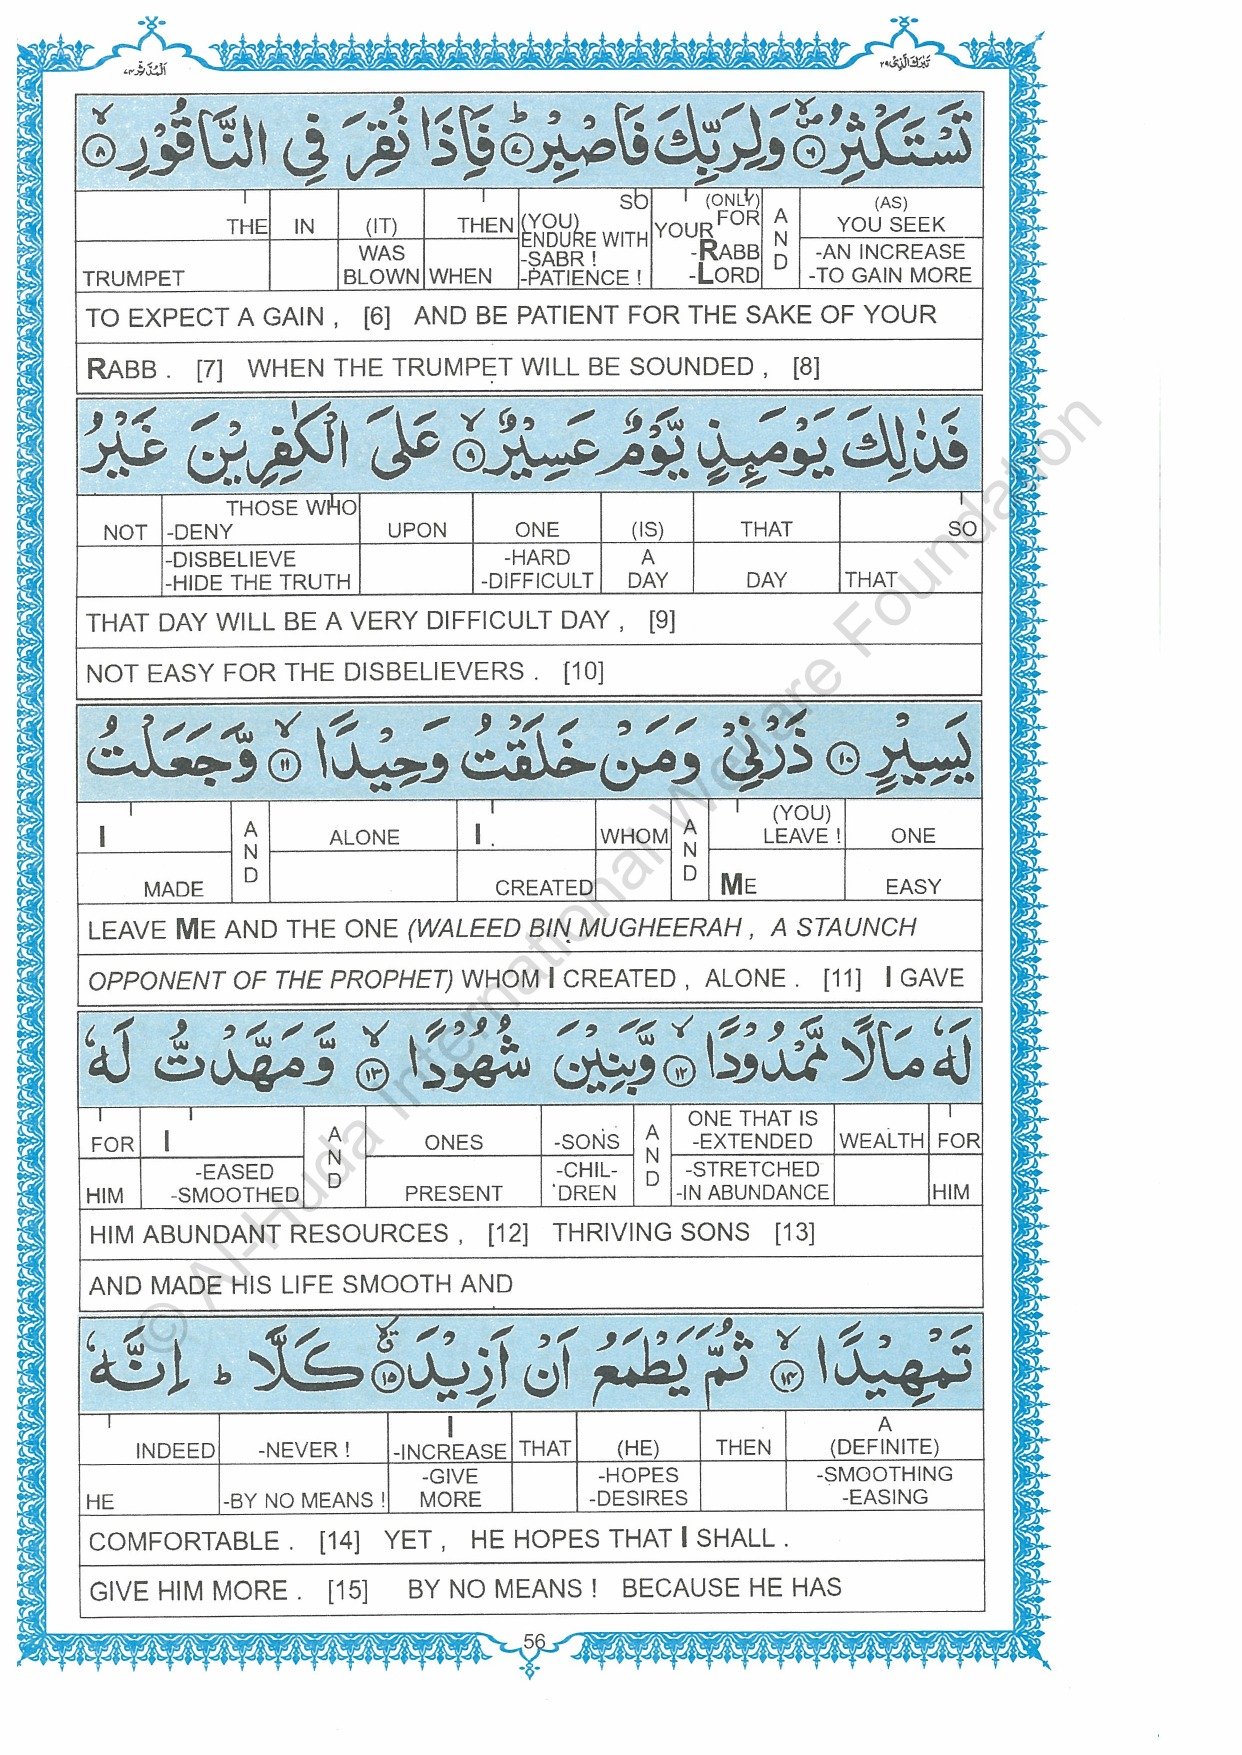 اَلْمُدَّثِّر ٧٤ تَبٰرَكَ الَّذِىْ ٢٩
تَسْتَكْثِرُ ۙ ۶ وَلِرَبِّكَ فَاصْبِرْ ؕ ۷ فَاِذَا نُقِرَ فِي النَّاقُوْرِ ۙ ۸
THE IN (IT) THEN (YOU) SO YOUR (ONLY) FOR AND (AS) YOU SEEK
TRUMPET WAS BLOWN WHEN ENDURE WITH -SABR ! -PATIENCE ! -RABB -LORD -AN INCREASE -TO GAIN MORE
TO EXPECT A GAIN , [6] AND BE PATIENT FOR THE SAKE OF YOUR
RABB . [7] WHEN THE TRUMPET WILL BE SOUNDED , [8]
فَذٰلِكَ يَوْمَىِٕذٍ يَّوْمٌ عَسِيْرٌ ۙ ۹ عَلَى الْكٰفِرِيْنَ غَيْرُ
NOT THOSE WHO -DENY UPON ONE (IS) THAT SO
-DISBELIEVE -HIDE THE TRUTH -HARD -DIFFICULT A DAY DAY THAT
THAT DAY WILL BE A VERY DIFFICULT DAY , [9]
NOT EASY FOR THE DISBELIEVERS . [10]
يَسِيْرٍ ۱۰ ذَرْنِيْ وَمَنْ خَلَقْتُ وَحِيْدًا ۙ ۱۱ وَّجَعَلْتُ
I AND ALONE I . WHOM AND (YOU) LEAVE ! ONE
MADE CREATED ME EASY
LEAVE ME AND THE ONE (WALEED BIN MUGHEERAH , A STAUNCH
OPPONENT OF THE PROPHET) WHOM I CREATED , ALONE . [11] I GAVE
لَهٗ مَالًا مَّمْدُوْدًا ۙ ۱۲ وَّبَنِيْنَ شُهُوْدًا ۙ ۱۳ وَّمَهَّدْتُّ لَهٗ
FOR I AND ONES -SONS AND ONE THAT IS -EXTENDED WEALTH FOR
HIM -EASED -SMOOTHED PRESENT -CHIL- DREN -STRETCHED -IN ABUNDANCE HIM
HIM ABUNDANT RESOURCES , [12] THRIVING SONS [13]
AND MADE HIS LIFE SMOOTH AND
تَمْهِيْدًا ۙ ۱۴ ثُمَّ يَطْمَعُ اَنْ اَزِيْدَ ۙ ۱۵ كَلَّا ؕ اِنَّهٗ
INDEED -NEVER ! I -INCREASE THAT (HE) THEN A (DEFINITE)
HE -BY NO MEANS ! -GIVE MORE -HOPES -DESIRES -SMOOTHING -EASING
COMFORTABLE . [14] YET , HE HOPES THAT I SHALL .
GIVE HIM MORE . [15] BY NO MEANS ! BECAUSE HE HAS
56
© Al-Huda International Welfare Foundation